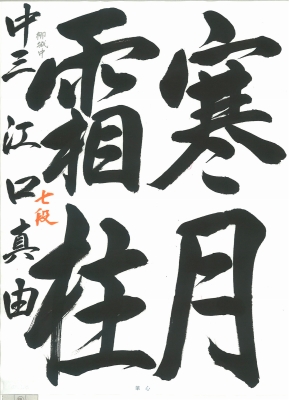 寒月
霜柱
中三 江口真由
七段